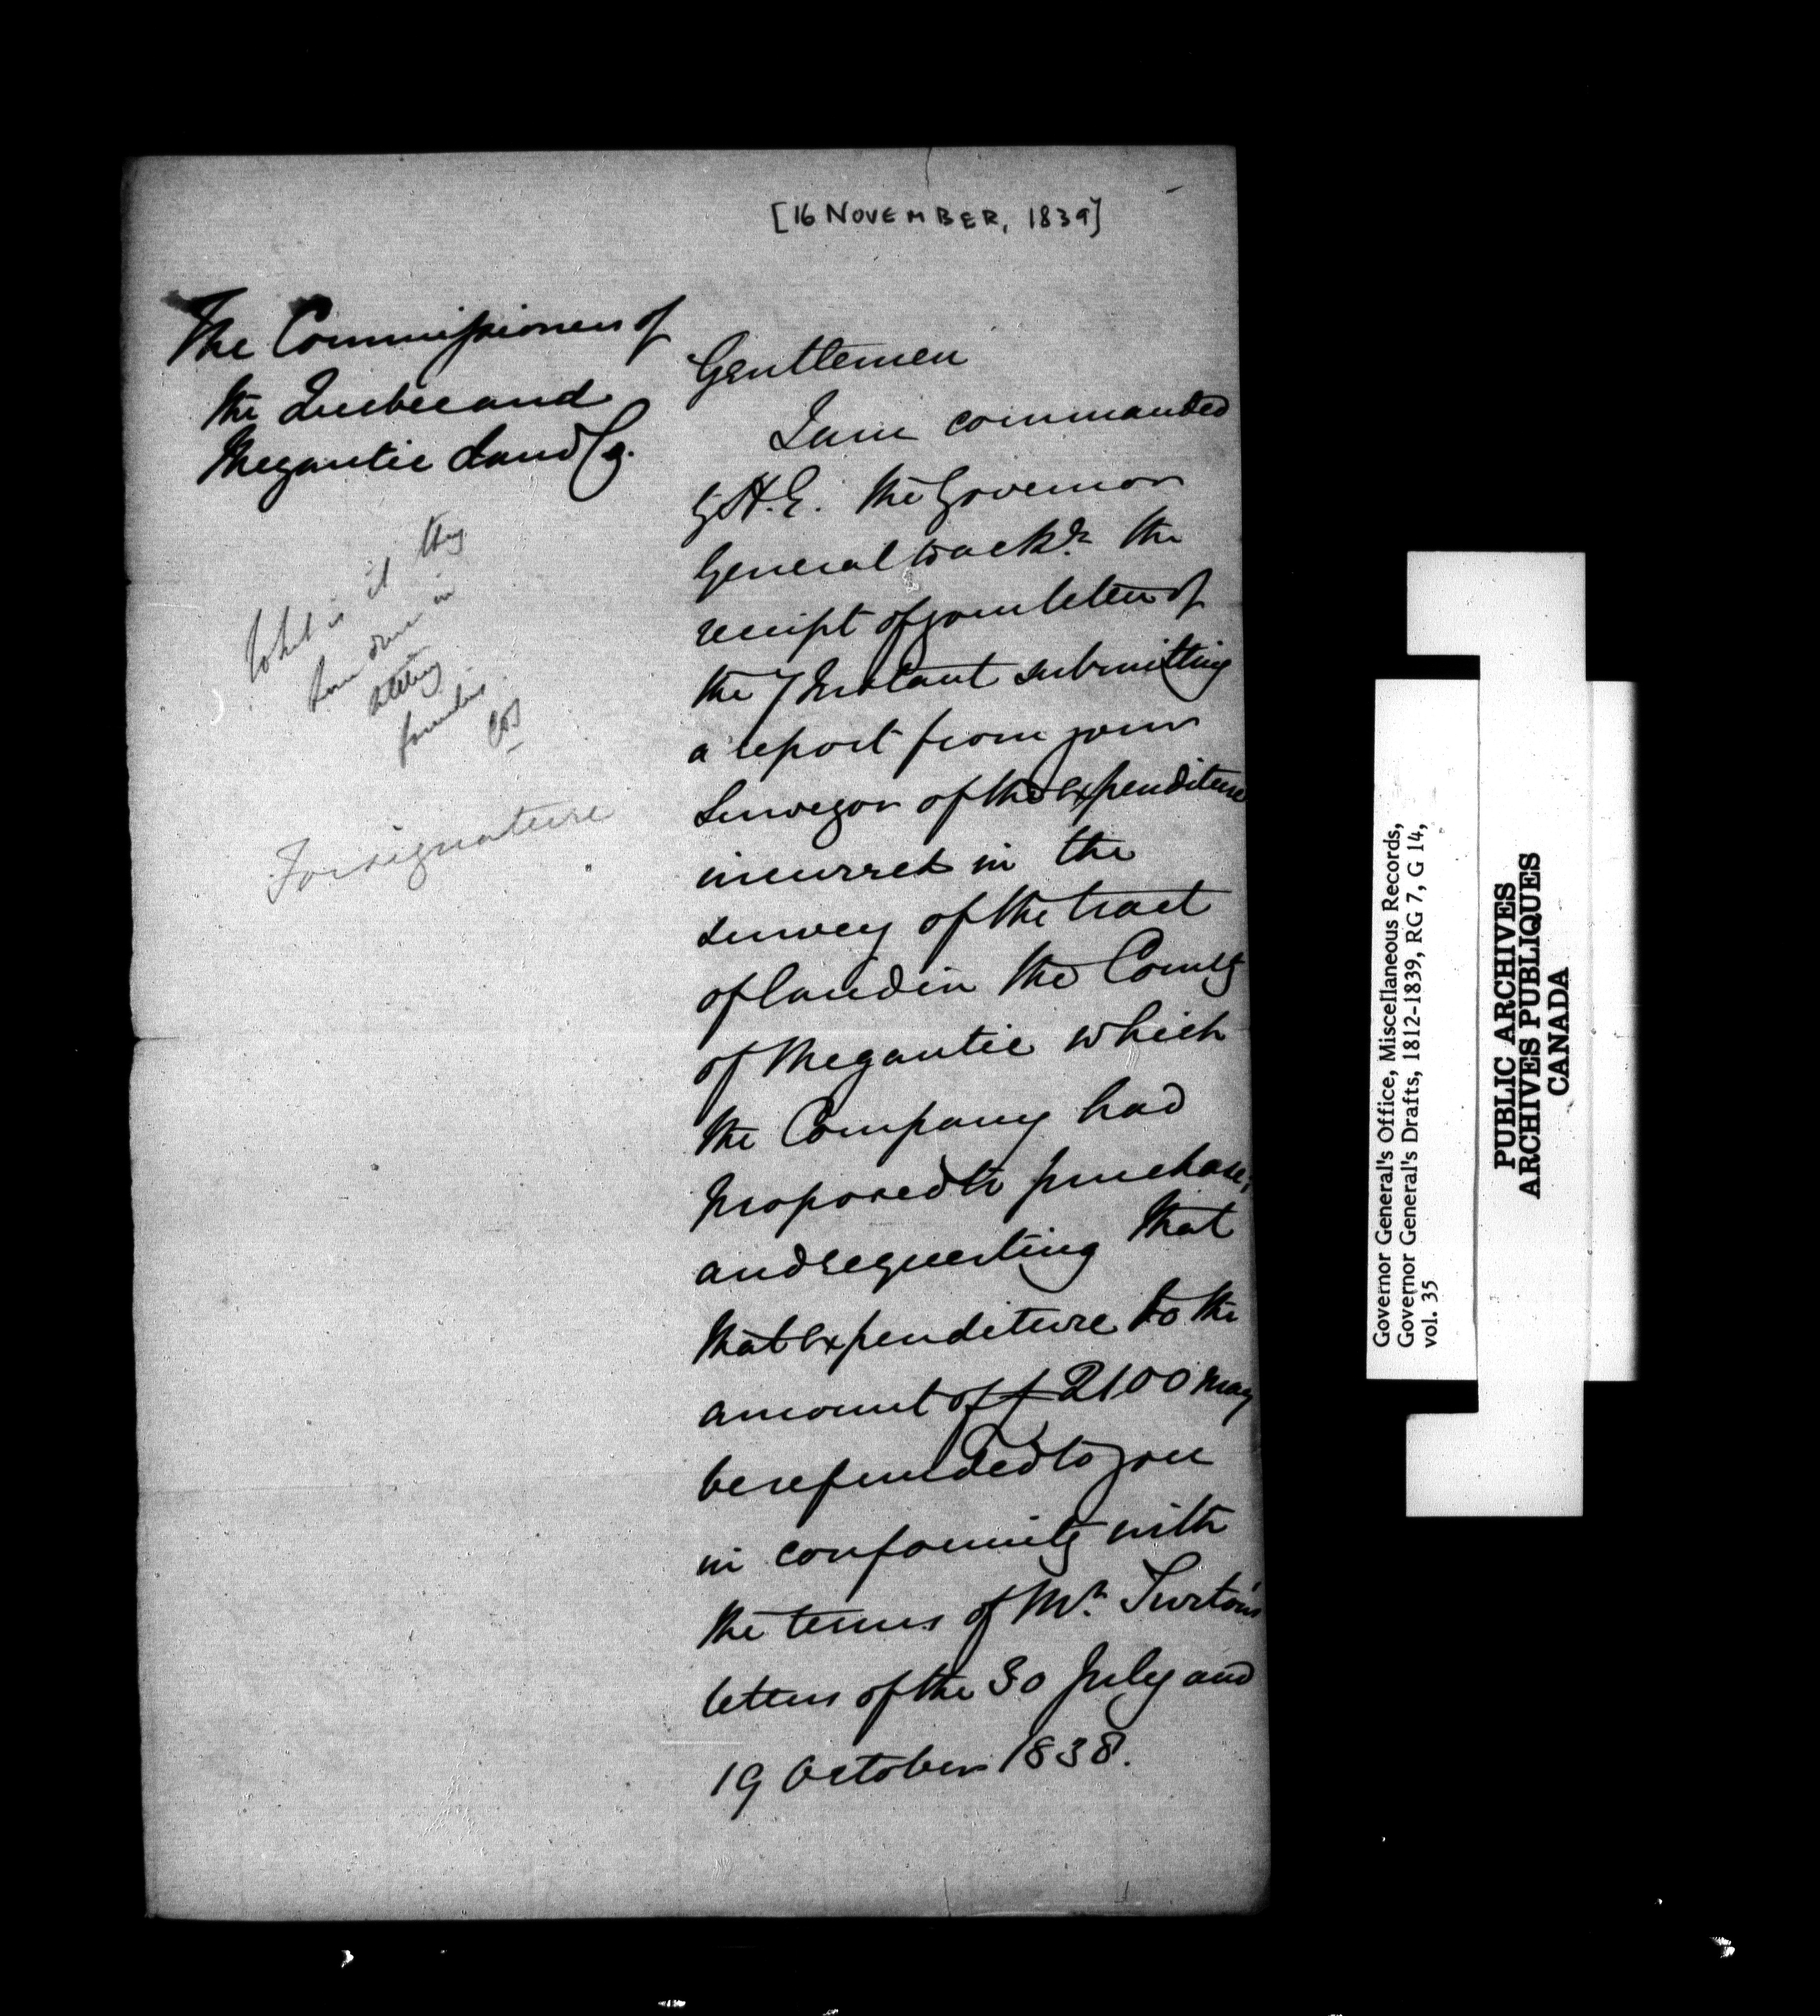 [16 NOVEMBER, 1839]
The Commissioners of
the Quebec and
Megantic Land Co.
What is it they
have done in
settling
families
For signature
Gentlemen
I am commanded
by H.E. the Governor
General to ackn. the
receipt of your letter of
the 7 Instant submitting
a report from your
Surveyor of the expenditure
incurred in the
survey of the tract
of land in the County
of Megantic which
the Company had
proposed to purchase,
and requesting that
that expenditure to the
amount of £2100 may
be refunded to you
in conformity with
the terms of Mr. Turton's
letters of the 30 July and
19 October 1838.
Governor General's Office, Miscellaneous Records,
Governor General's Drafts, 1812-1839, RG 7, G 14,
vol. 35
PUBLIC ARCHIVES
ARCHIVES PUBLIQUES
CANADA